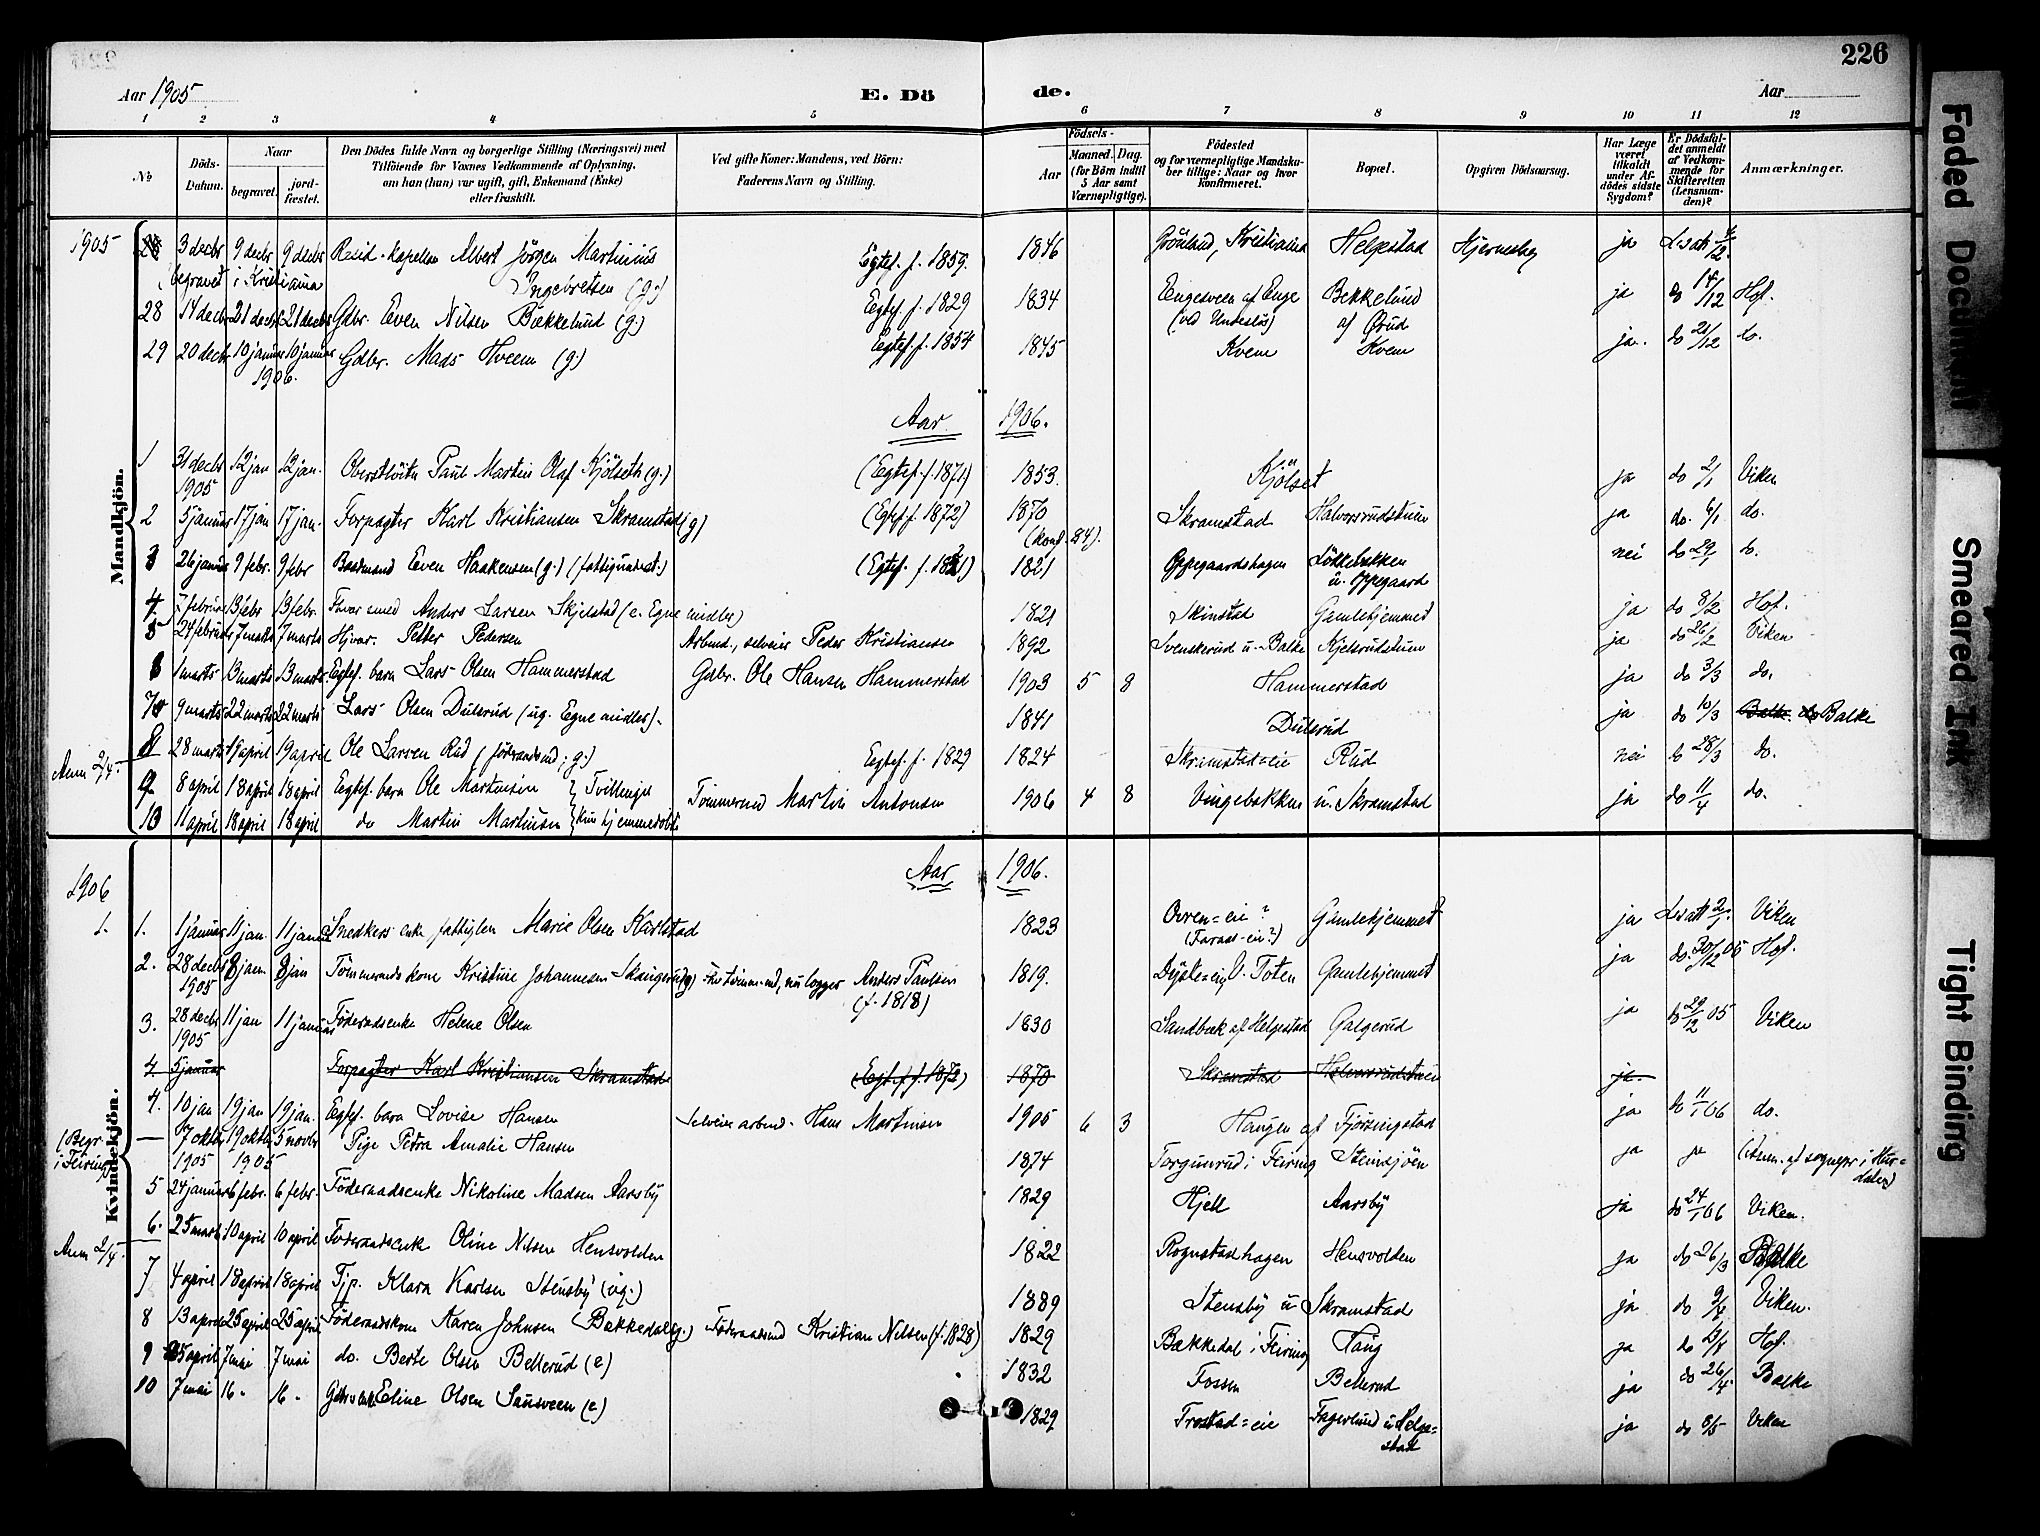 226
Aar 1905
E. Dö de.
Aar
1 2 3 4 5 6 7 8 9 10 11 12
No
Döds-Datum.
Naar
begravet.
jord-fæstet.
Den Dödes fulde Navn og borgerlige Stilling (Næringsvei) med
Tilföiende for Voxnes Vedkommende af Oplysning,
om han (hun) var ugift, gift, Enkemand (Enke)
eller fraskilt.
Ved gifte Koner: Mandens, ved Börn:
Faderens Navn og Stilling.
Födsels-
Aar
Maaned. Dag.
(for Börn indtil
5 Aar samt
Værnepligtige).
Födested
og for værnepligtige Mandsku-
ber tillige: Naar og hvor
konfirmeret.
Bopæl.
Opgiven Dödsaarsag.
Har Læge
været
tilkaldt
under Af-
dödes sidste
Sygdom?
Er Dödsfal-
det anmeldt
af Vedkom-
mende for
Skifteretten
(Lensman-
den)?
Anmærkninger.
Mandkjön.
1905 3 decbr 9 decbr 9 decbr Resid. kapellan Albert Jörgen Martinius Egtef. f. 1859. 1846 Grönland, Kristiania Helgestad Hjerneslag ja
begravet i Kristiania Ingebretsen (g.)
28 14 decbr 21 decbr 21 decbr Gdbr. Even Nilsen Bækkelund (g.) Egtef. f. 1829 1834 Engesveen af Enge Bekkelund ja do 14/12 Hof.
af Ørud
29 20 decbr 10 januar 10 januar Gdbr. Mads Hveem (g.) Egtef. f. 1854 1845 Kvem Kvem ja. do 21/12 do.
1906.
Aar 1906.
1 31 decbr 12 jan 12 jan. Oberstlöitn Paul Martin Olaf Kjölseth (g.) (Egtef. f. 1871) 1853. Kjölset ja do 2/1 Viken
1905
2 5 januar 17 jan 17 jan. Forpagter Karl Kristiansen Skramstad (g) (Egtef f. 1872) 1870 Skramstad Halvorsrudstuen ja do. 6/1 do.
(konf. 84).
3 26 januar 9 febr. 9 febr Baadmand Even Haakensen (g.) (fattigunderst.) 1821 Oppegaardshagen Lökkebakken nei do 29/1 do.
u. Oppegaard
4 7 februar 13 febr 13 febr. Anders Larsen Skjelstad (e. Egne midler) 1821 Skinstad Gamlehjemmet ja do 8/2 Hof.
5 24 februar 7 marts 7 marts Petter Pedersen Arbmd., selveier Peder Kristiansen 1892 Svenskerud u. Balke Kjelsrudstuen ja do 26/2 Viken
6 1 marts 13 marts 13 marts. Egtef. barn Lars Olsen Hammerstad Gdbr. Ole Hansen Hammerstad 1903 5 8 Hammerstad ja do 3/3 do.
7 9 marts 22 marts 22 marts Lars Olsen Dulsrud (ug. Egne midler). 1841 Dulsrud ja do 10/3 Balke
Anm 2/4. 8 28 marts 19 april 19 april Ole Larsen Rud (föderaadsmd; g.) Egtef. f. 1829 1824 Skramstad-eie Rud nei do 28/3 do.
9 8 april 18 april 18 april Egtef. barn Ole Martinsen } Tvillinger Tömmermd Martin Antonsen 1906 4 8 Vingebakken u. Skramstad ja do 11/4 do.
10 11 april 18 april 18 april do Martin Martinsen } Kun hjemmedöbt
Kvindekjön.
1906 Aar 1906.
1. 1. 1 januar 11 jan. 11 januar Snedkers enke fattiglem Marie Olsen Karlstad 1823 Ovren-eie? Gamlehjemmet ja Lsatt 2/1. Viken
2. 28 decbr 8 jan. 8 jan Tömmermands kone Kristine Johannesen (g) Anders Paulsen 1819. Dyste-eie V. Toten Gamlehjemmet ja do. 30/12 05 Hof.
1905 (f. 1818)
3. 28 decbr 11 jan 11 januar Föderaadsenke Helene Olsen 1830 Sandbæk af Helgestad Galgerud ja do 29/12 05 Viken
1905
4. 5 januar Forpagter Karl Kristiansen Skramstad (Egtef f. 1872) 1870 Skramstad Halvorsrudstuen ja.
4. 10 jan 19 jan 19 jan. Egtef. barn Lovise Hansen Selveier arbmd. Hans Martinsen 1905 6 3 Haugen af Fjörsingstad ja do 11/1 06 do.
(Begr. i Feiring) — 7 oktbr 19 oktbr 5 novbr Pige Petra Amalie Hansen 1874 Torgunrud i Feiring Steinsjöen ja ja (Anm. af sognepr i Hur-
1905 1905 dalen)
5 24 januar 6 febr. 6 febr. Föderaadsenke Nikoline Madsen Aarsby 1829 Hjell Aarsby ja do 24/1 06 Viken.
6. 25 marts 10 april 10 april Föderaadsenke Oline Nilsen Hensvolden 1822 Rognstadhagen Hensvolden ja do 26/3 Balke
Anm 2/4. 7 4 april 18 april 18 april Tjp. Klara Karlsen Stensby (ug.) 1889 Stensby u. Skramstad ja do Viken.
8 13 april 25 april 25 april Föderaadskone Karen Johnsen Bækkedal (g.) Föderaadsmd Kristian Nilsen (f. 1828) 1829 Bækkedal i Feiring Tang ja do Hof.
9 25 april 7 mai 7 mai do. Berte Olsen Bellerud (e) 1832 Fossen Bellerud ja do 26/4 Balke
10 7 mai 16 " 16 " Eline Olsen Sausveen (e) 1829 Frostad-eie Fagerlund u Helge- ja do 8/5 Viken
stad
Faded Document
Smeared Ink
Tight Binding